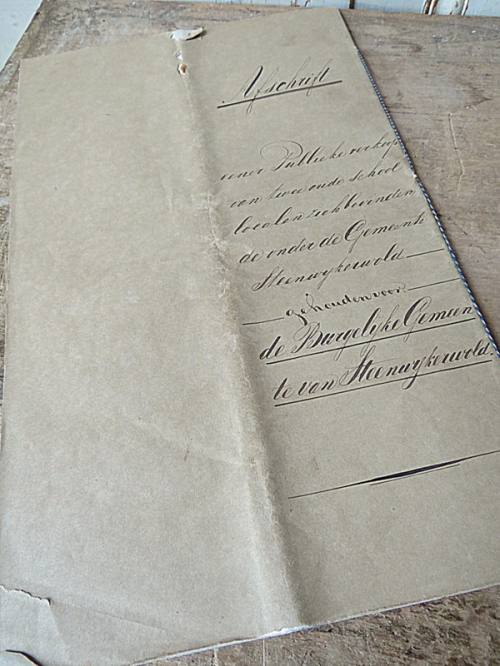 Afschrift
eener Publieke verkoop
van twee oude school
localen zich bevinden
de onder de Gemeente
Steenwijkerwold
gehouden voor
de Burgelijke Gemeen
te van Steenwijkerwold